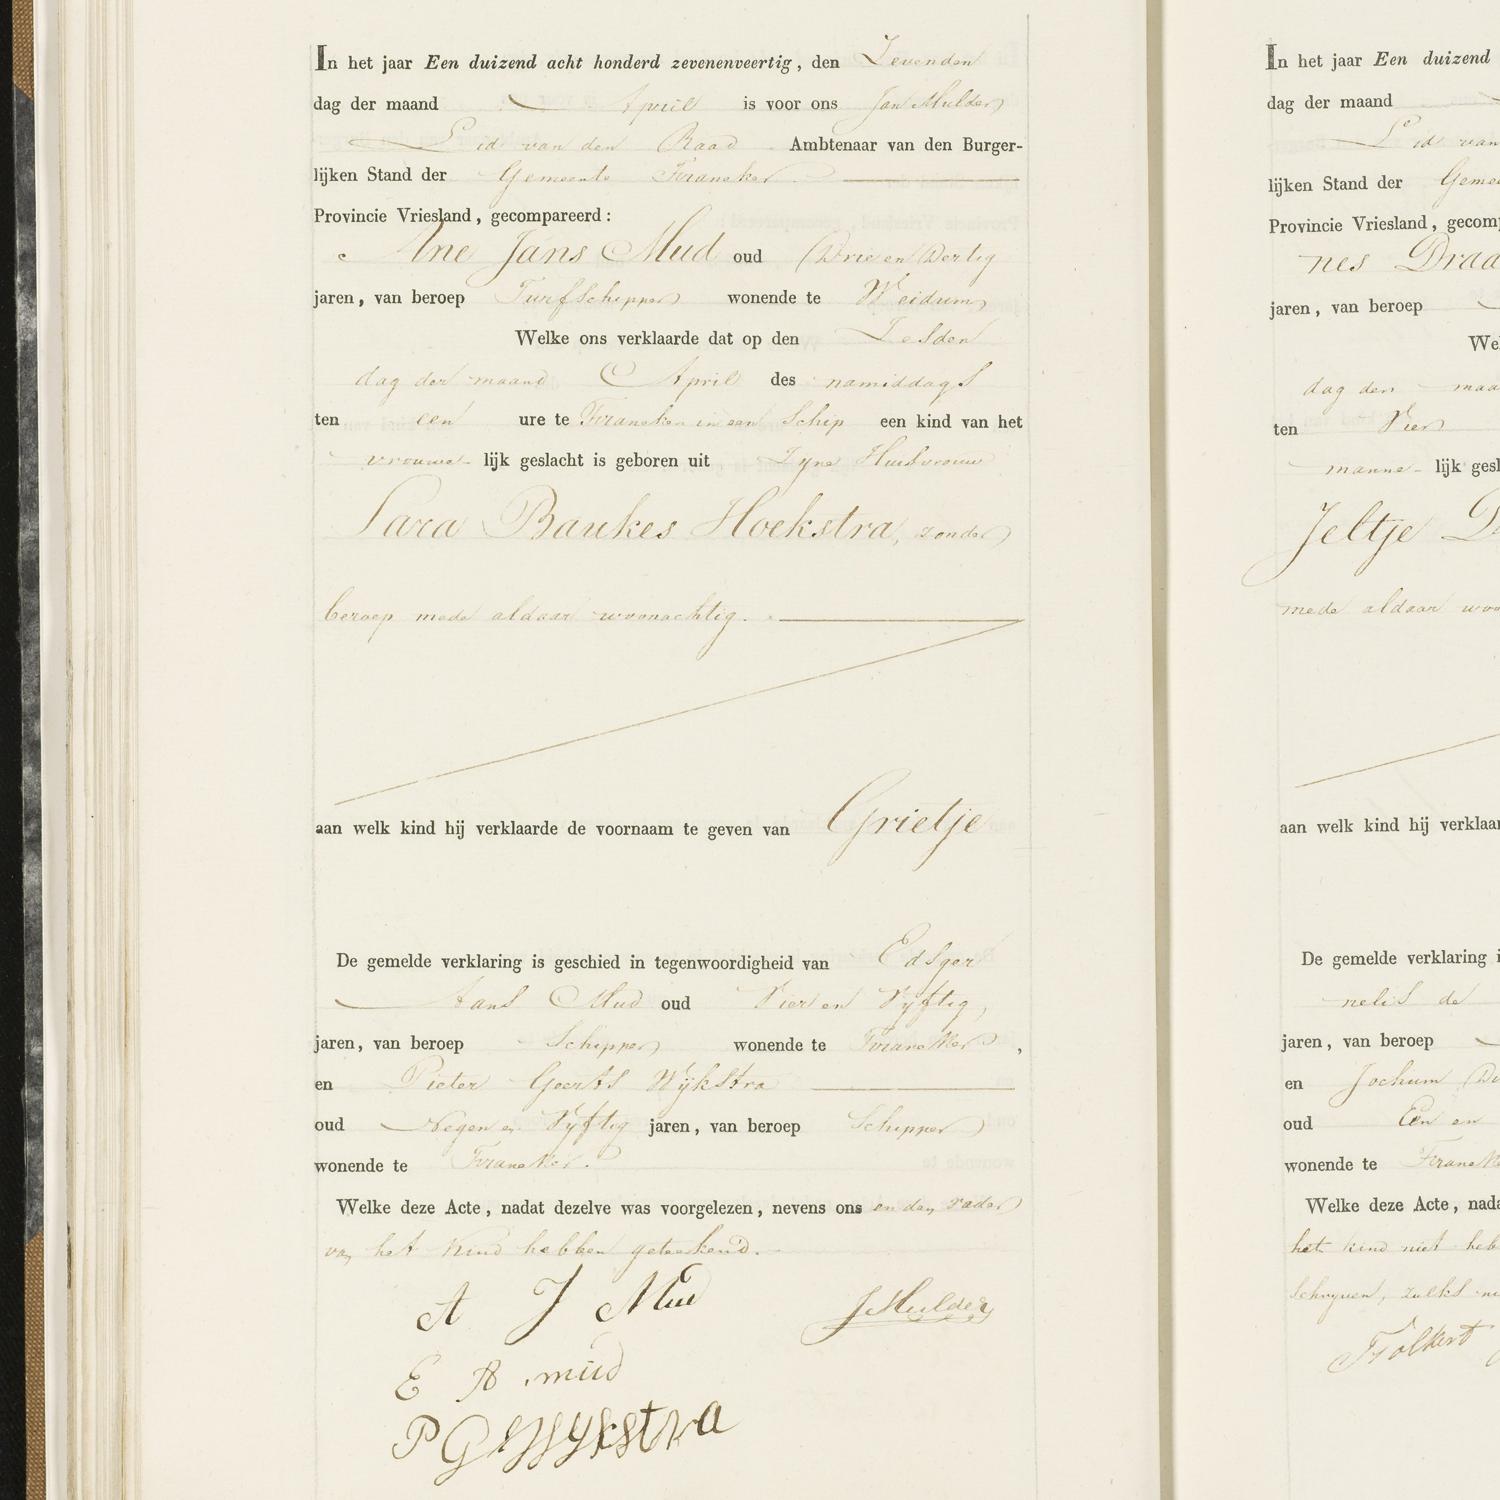 In het jaar Een duizend acht honderd zevenenveertig, den Zevenden
dag der maand April is voor ons Jan Mulder
Lid van den Raad Ambtenaar van den Burger-
lijken Stand der Gemeente Franeker
Provincie Vriesland, gecompareerd:
Ane Jans Mud oud Drie en Dertig
jaren, van beroep Turfschipper wonende te Weidum
Welke ons verklaarde dat op den Zesden
dag der maand April des namiddags
ten een ure te Franeker in een Schip een kind van het
vrouwe- lijk geslacht is geboren uit Zyne Huisvrouw
Sara Baukes Hoekstra, zonder
beroep mede aldaar woonachtig.
aan welk kind hij verklaarde de voornaam te geven van Grietje
De gemelde verklaring is geschied in tegenwoordigheid van Edsger
Mud oud Vier en Vyftig,
jaren, van beroep Schipper wonende te Franeker,
en Pieter Geerts Wijkstra
oud Negen en Vyftig jaren, van beroep Schipper
wonende te Franeker.
Welke deze Acte, nadat dezelve was voorgelezen, nevens ons en den vader
van het kind hebben geteekend.
A J Mud JMulder
E A mud
P G Wijkstra
In het jaar Een duizend
dag der maand
Lid van
lijken Stand der Geme
Provincie Vriesland, gecomp
nes Draa
jaren, van beroep
Wel
dag der maa
ten Vier
manne- lijk gesl
Jeltje D
mede aldaar woo
aan welk kind hij verklaar
De gemelde verklaring i
nelis de
jaren, van beroep
en Jochum
oud Een en
wonende te Franek
Welke deze Acte, nada
het kind niet heb
schryven, zulks
Folkert